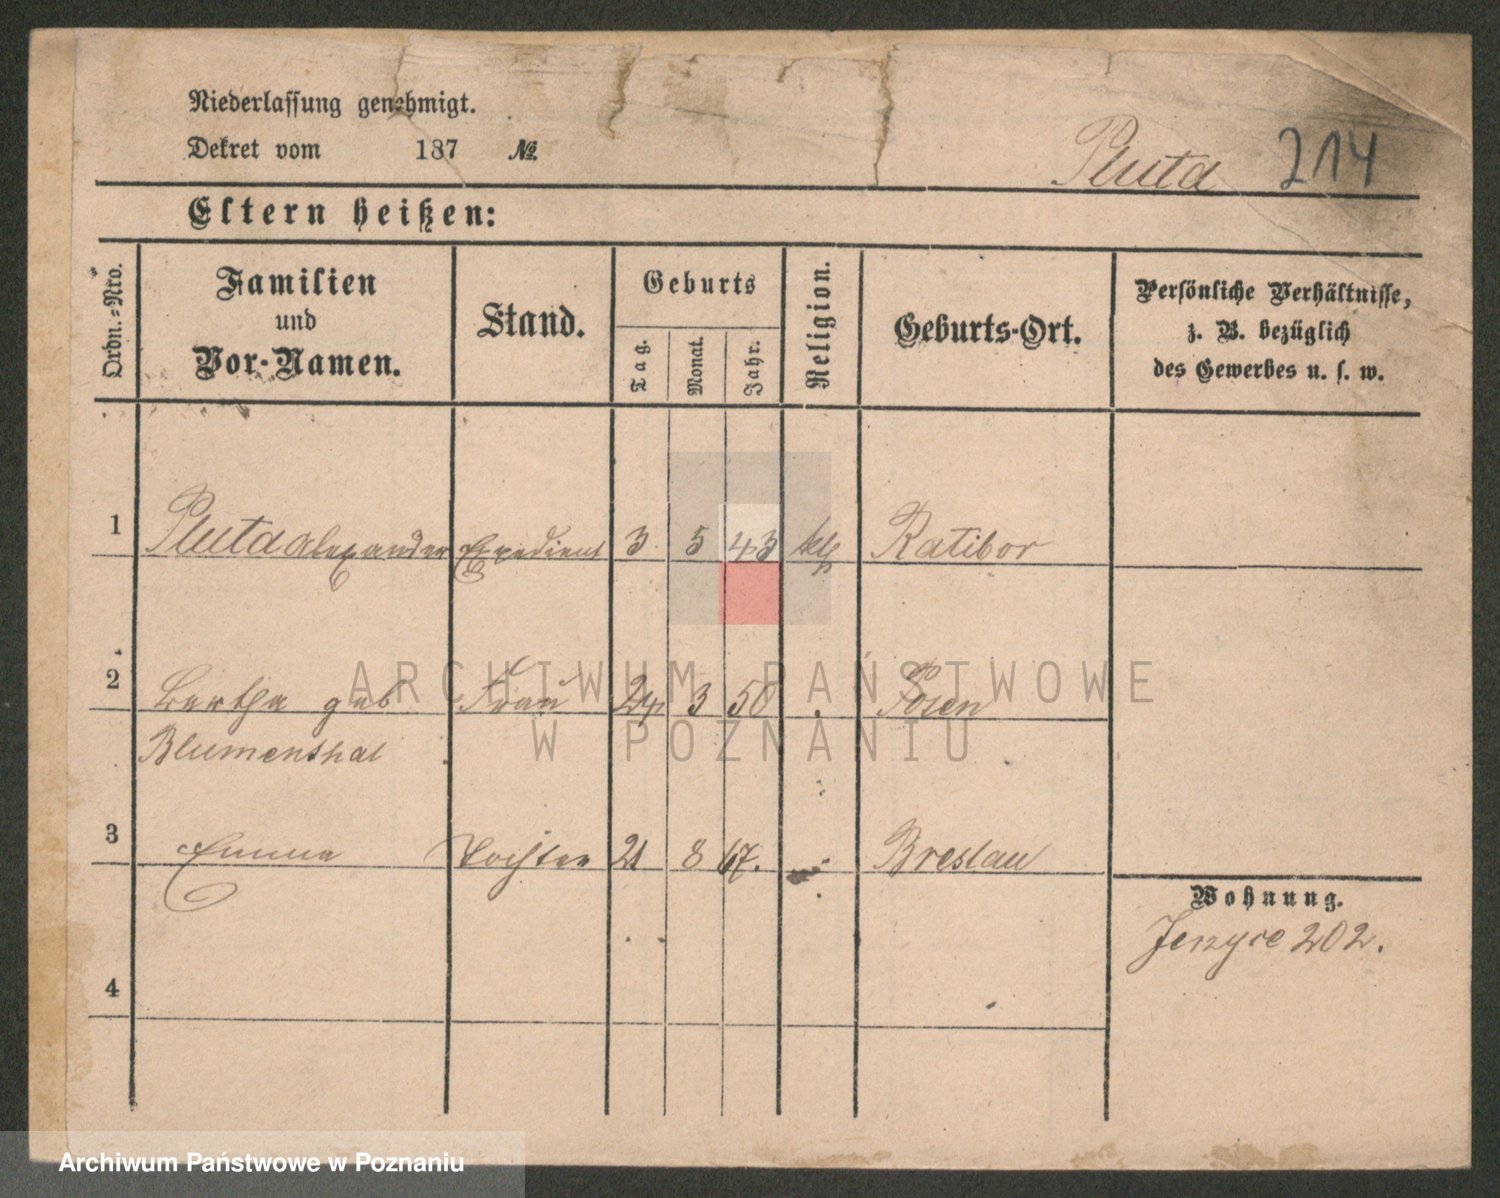 Niederlassung genehmigt.
Dekret vom 187 №
Pluta 214
Eltern heißen:
Ordn.-Nro.
Familien
und
Vor-Namen.
Stand.
Geburts
Tag.
Monat.
Jahr.
Religion.
Geburts-Ort.
Persönliche Verhältnisse,
z. B. bezüglich
des Gewerbes u. s. w.
1 Pluta Alexander Expedient 3 5 43 kth Ratibor
2 Bertha geb Frau 24 3 50 Posen
Blumenthal
3 Emma Tochter 21 8 67. Breslau
Wohnung.
Jerzyce 202.
4
ARCHIWUM PAŃSTWOWE
W POZNANIU
Archiwum Państwowe w Poznaniu